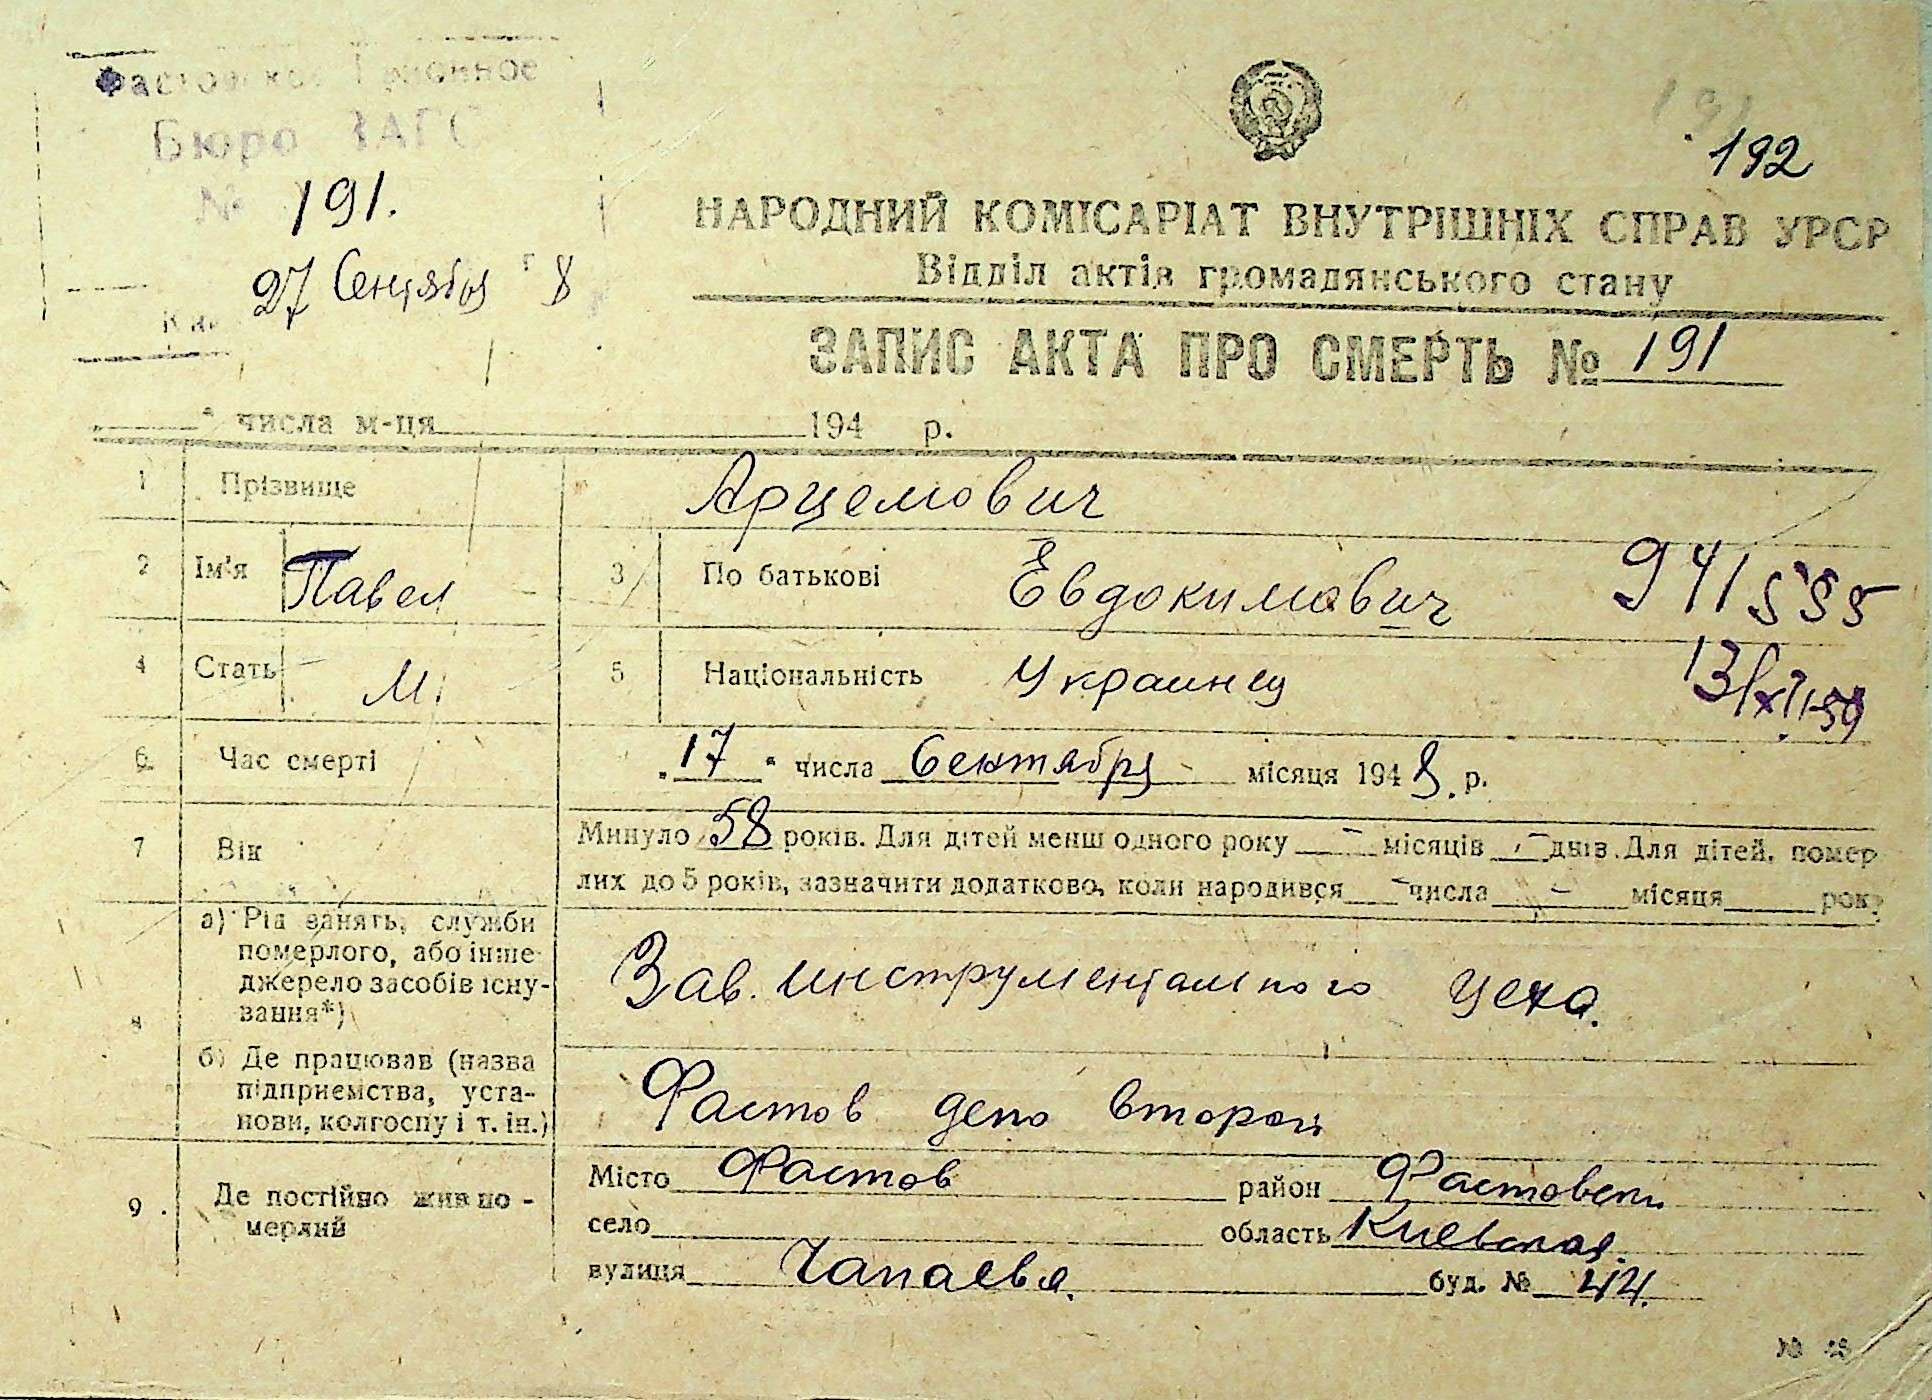 Фастовское Районное
Бюро ЗАГС
№ 191.
27 Сентября г 8
192
НАРОДНИЙ КОМІСАРІАТ ВНУТРІШНІХ СПРАВ УРСР
Відділ актів громадянського стану
ЗАПИС АКТА ПРО СМЕРТЬ № 191
" числа м-ця 194 р.
1 Прізвище Арцемович
2 Ім'я Павел 3 По батькові Евдокимович 941555
4 Стать М. 5 Національність Украинец 13/XII-59
6 Час смерті "17" числа Сентября місяця 1948. р.
7 Вік Минуло 58 років. Для дітей менш одного року — місяців — днів. Для дітей, помер
лих до 5 років, зазначити додатково, коли народився — числа — місяця року
8 а) Рід занять, служби
померлого, або інше
джерело засобів існу-
вання*) Зав. инструментального цеха.
б) Де працював (назва
підприємства, уста-
нови, колгоспу і т. ін.) Фастов депо второй
9. Де постійно жив по-
мерлий
Місто Фастов район Фастовск.
село область Киевская.
вулиця Чапаева. буд. № 44.